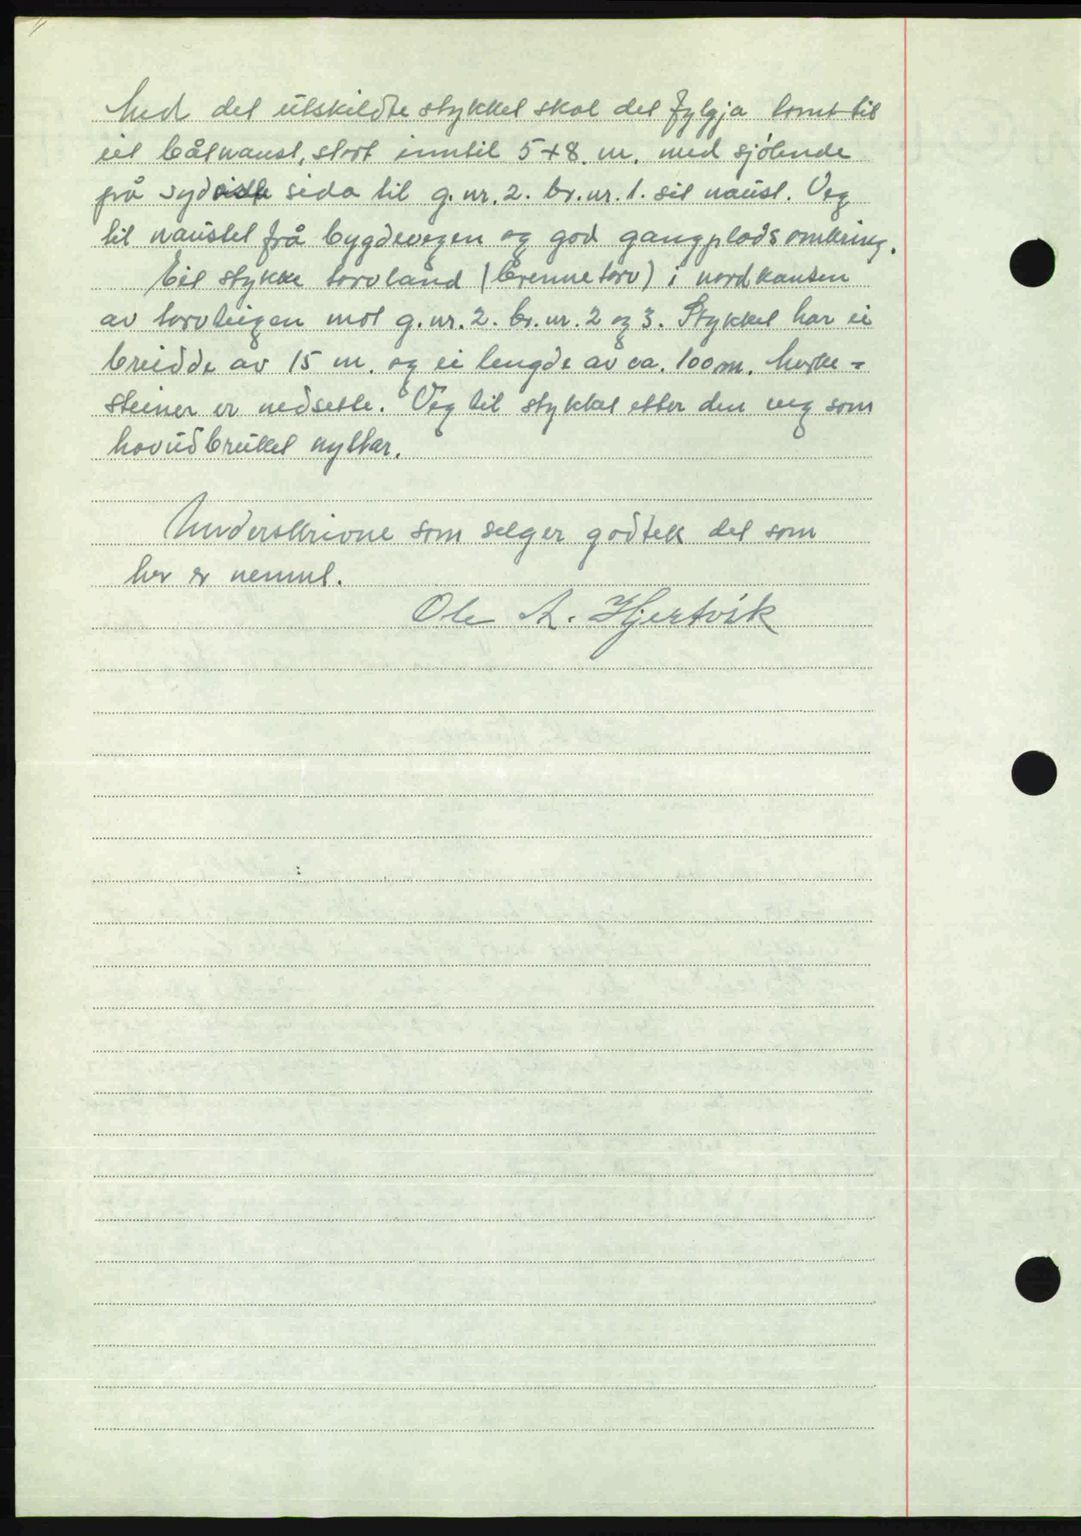 Med det utskildte stykket skal det fylgja tomt til
eit båtnaust, stort inntil 5+8. m. med sjølende
på syd sida til g.nr. 2. br.nr. 1. sit naust. Veg
til naustet frå bygdevegen og god gangplads omkring.
Eit stykke torvland (brennetorv) i nordkanten
av torvteigen mot g.nr. 2. br.nr. 2 og 3. Stykket har ei
breidde av 15 m. og ei lengde av ca. 100 m. Merke-
steiner er nedsette. Veg til stykket etter den veg som
hovudbruket nyttar.
Underskrivne som selger godtek det som
her er nemnt.
Ole A. Hjertvik